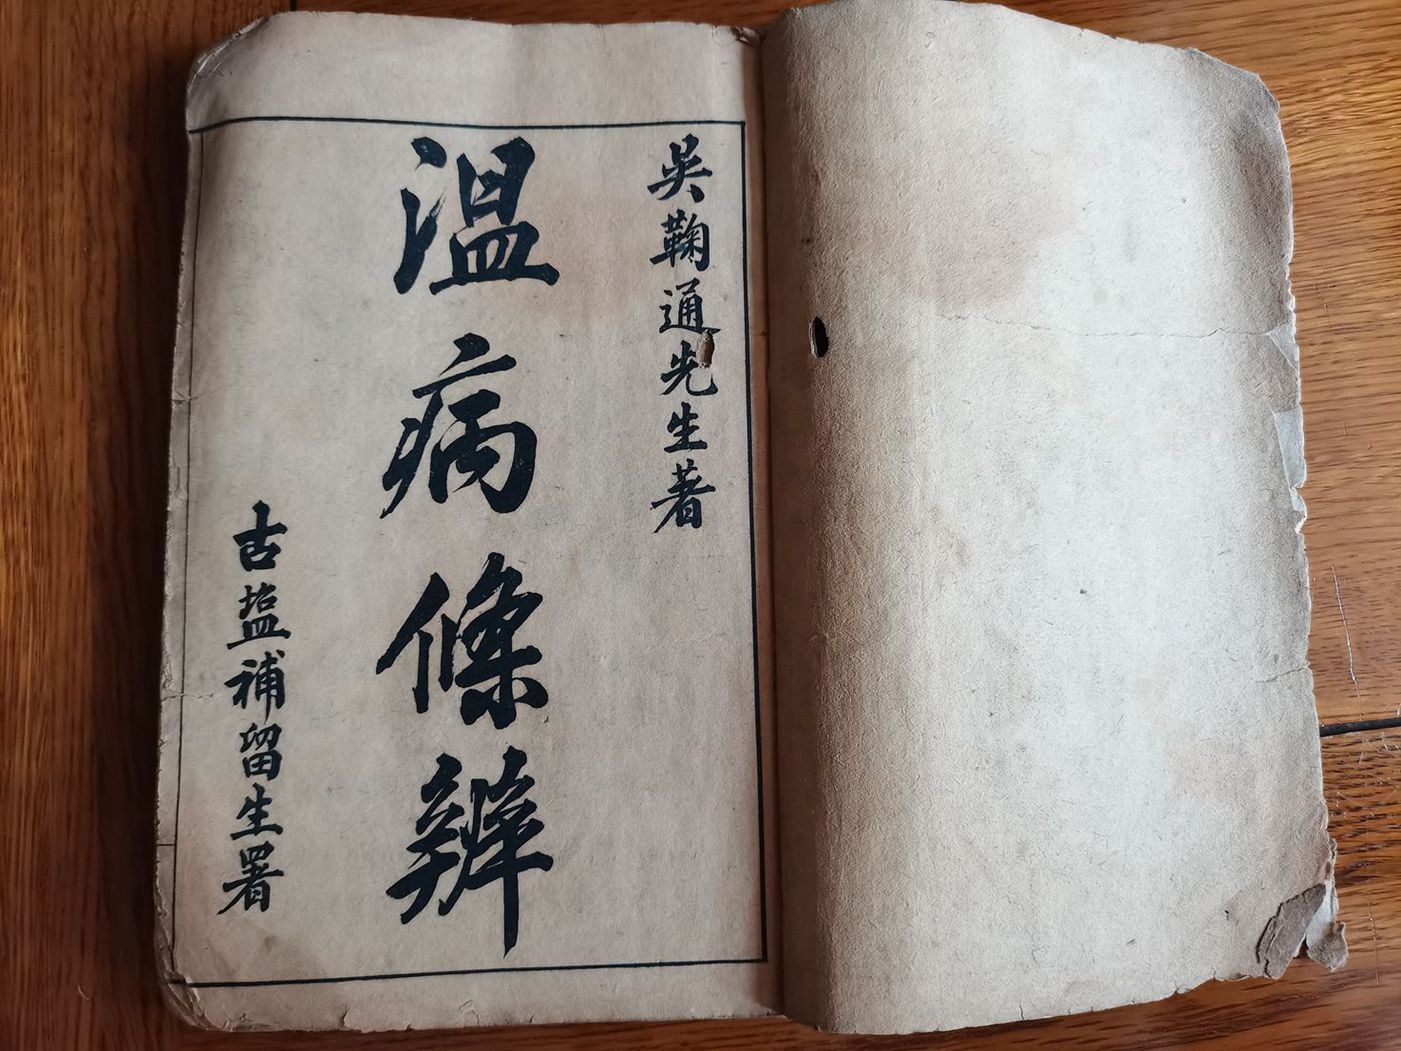 吳鞠通先生著
温病條辨
古塩補留生署